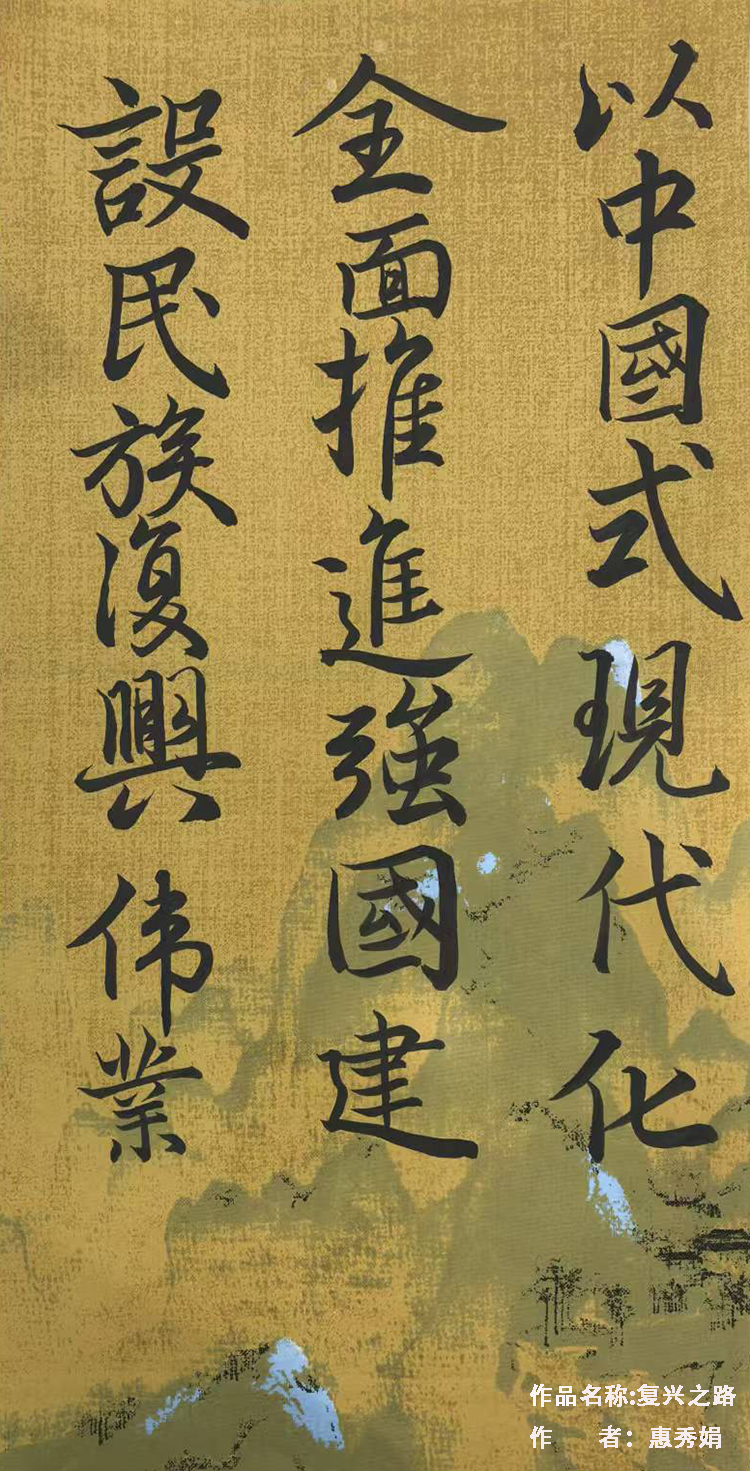 以中國式現代化
全面推進強國建
設民族復興伟業
作品名称:复兴之路
作 者：惠秀娟